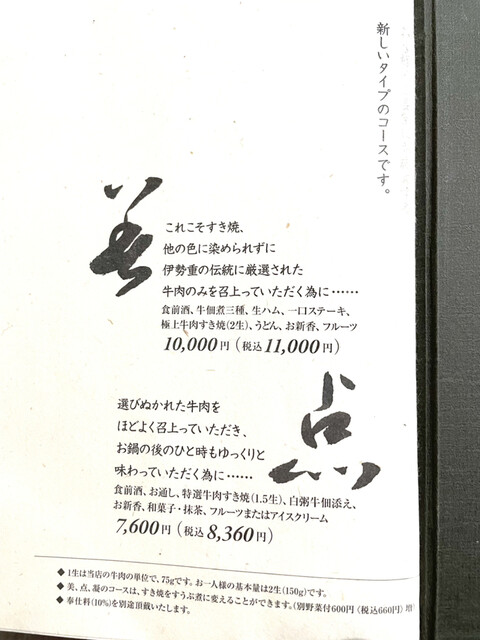 新しいタイプのコースです。
美
これこそすき焼、
他の色に染められずに
伊勢重の伝統に厳選された
牛肉のみを召上っていただく為に……
食前酒、牛佃煮三種、生ハム、一口ステーキ、
極上牛肉すき焼(2生)、うどん、お新香、フルーツ
10,000円（税込11,000円）
点
選びぬかれた牛肉を
ほどよく召上っていただき、
お鍋の後のひと時もゆっくりと
味わっていただく為に……
食前酒、お通し、特選牛肉すき焼(1.5生)、白粥牛佃添え、
お新香、和菓子・抹茶、フルーツまたはアイスクリーム
7,600円（税込8,360円）
◆1生は当店の牛肉の単位で、75gです。お一人様の基本量は2生(150g)です。
◆美、点、凝のコースは、すき焼をすうぷ煮に変えることができます。（別野菜付600円《税込660円》増
◆奉仕料(10%)を別途頂戴いたします。